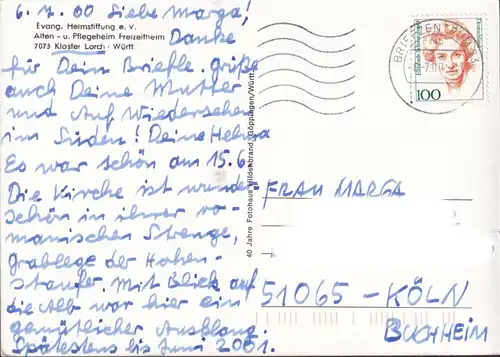 6.7.00 Liebe Marga!
Evang. Heimstiftung e. v.
Alten - u. Pflegeheim Freizeitheim
7073 Kloster Lorch · Württ.
Danke
für Dein Briefle. Grüße
auch Deine Mutter
und Auf Wiedersehen
im Süden! Deine
Es war schön am 15.6.
Die Kirche ist wunder-
schön in ihrer ro-
manischen Strenge,
Grablege der Hohen-
staufer. Mit Blick auf
die Alb war hier ein
gemütlicher Ausklang.
Spätestens bis Juni 2001.
40 Jahre Fotohaus Hildenbrand, Göppingen/Württ.
BRIEFZENTRUM 73
100
FRAU MARGA
51065 - KÖLN
BUCHHEIM